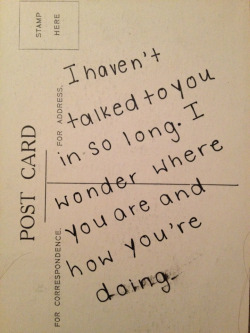 STAMP
HERE
I haven't
talked to you
in so long. I
wonder where
you are and
how you're
doing.
POST CARD
FOR ADDRESS.
FOR CORRESPONDENCE.